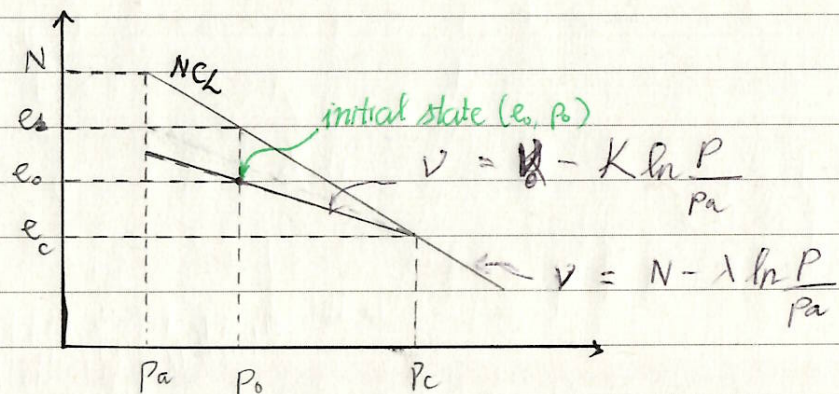 N
NCL
initial state (e₀, p₀)
e₀
ν = - K ln P/pa
e_c
ν = N - λ ln P/pa
Pa
P₀
Pc